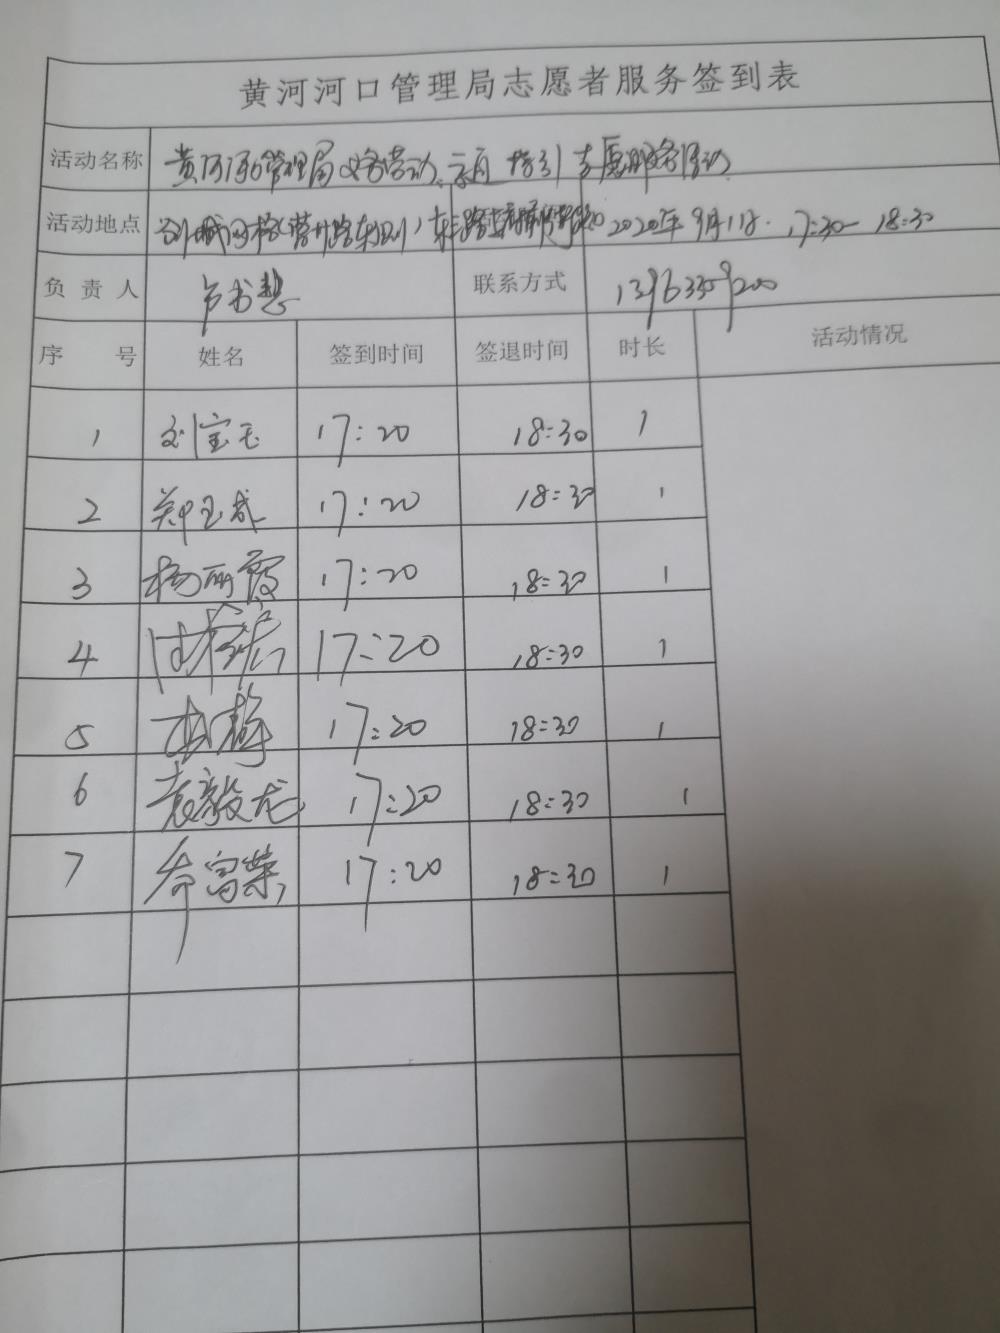 黄河河口管理局志愿者服务签到表
活动名称 黄河河口管理局义务劳动、交通指引志愿服务活动
活动地点 2020年9月11日 17:30—18:30
负责人 联系方式
序号 姓名 签到时间 签退时间 时长 活动情况
1 刘宝玉 17:20 18:30 1
2 郑玉成 17:20 18:30 1
3 杨丽霞 17:20 18:30 1
4 17:20 18:30 1
5 17:20 18:30 1
6 袁毅龙 17:20 18:30 1
7 乔富荣 17:20 18:30 1